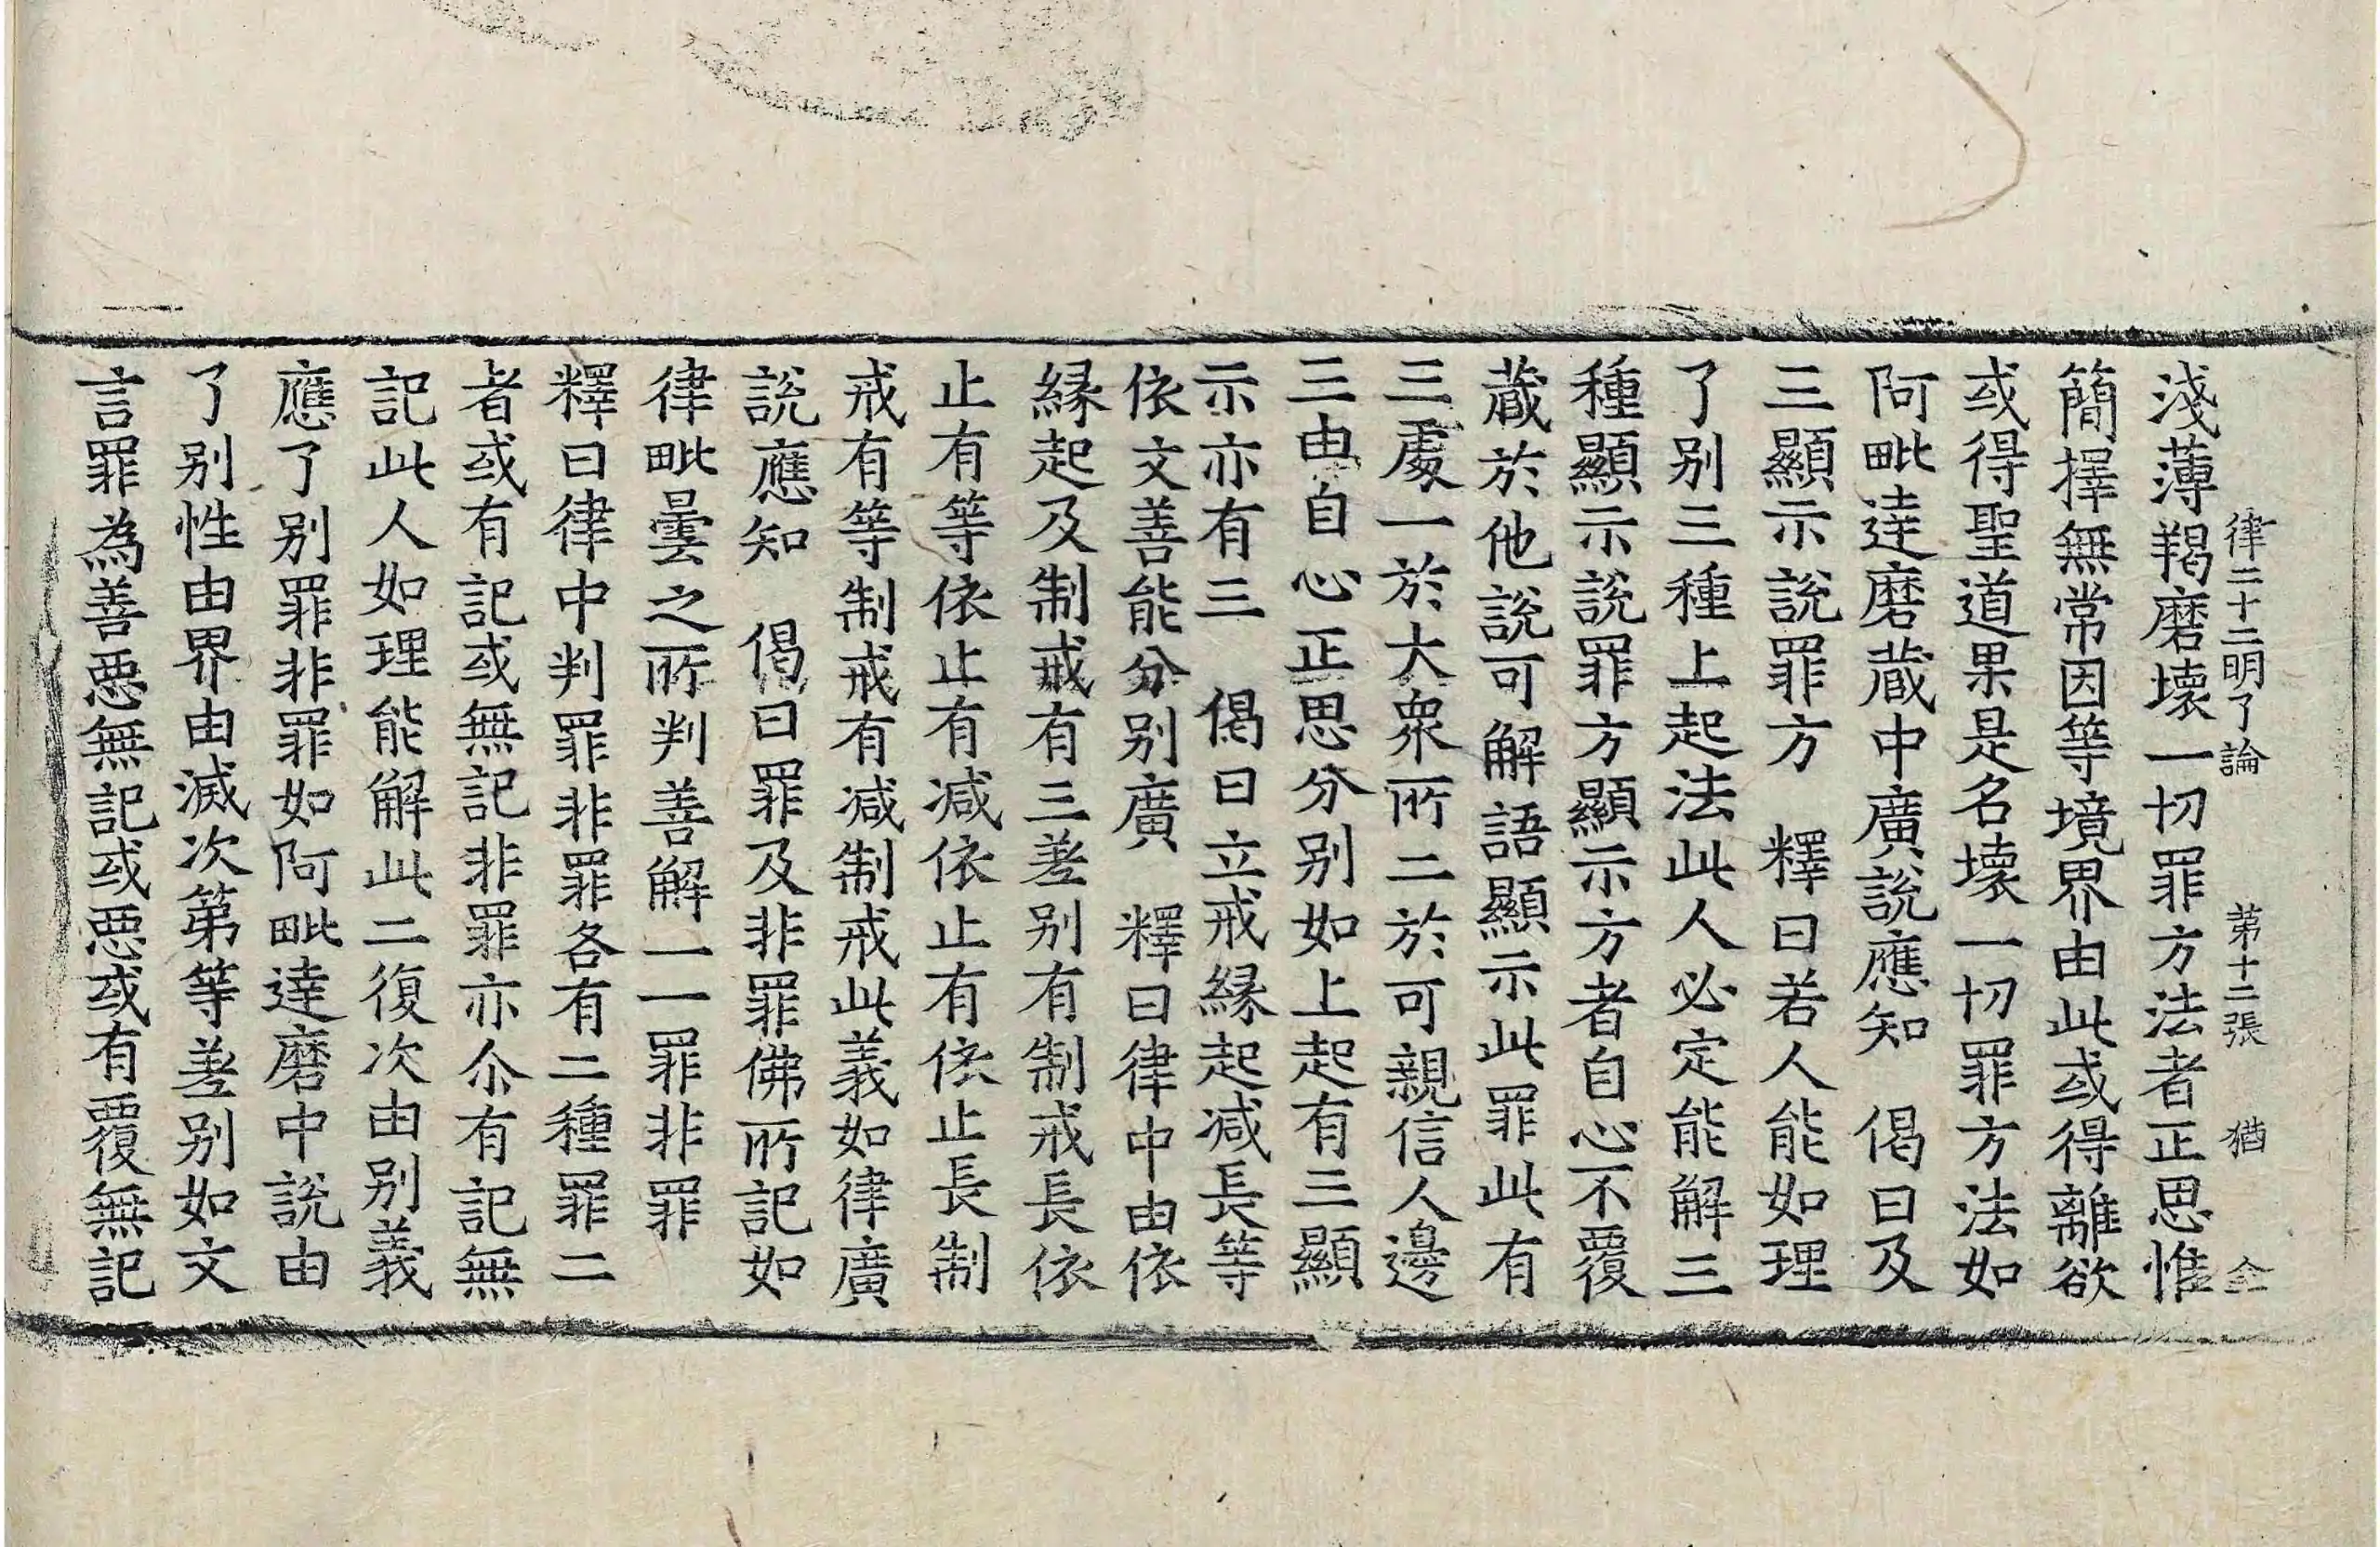 律二十二明了論 第十二張 猶 仝
淺薄羯磨壞一切罪方法者正思惟
簡擇無常因等境界由此或得離欲
或得聖道果是名壞一切罪方法如
阿毗達磨蔵中廣說應知 偈曰及
三顯示說罪方 釋曰若人能如理
了別三種上起法此人必定能解三
種顯示說罪方顯示方者自心不覆
蔵於他說可解語顯示此罪此有
三處一於大衆所二於可親信人邊
三由自心正思分別如上起有三顯
示亦有三 偈曰立戒緣起減長等
依文善能分別廣 釋曰律中由依
緣起及制戒有三差別有制戒長依
止有等依止有減依止有依止長制
戒有等制戒有減制戒此義如律廣
說應知 偈曰罪及非罪佛所記如
律毗曇之所判善解一一罪非罪
釋曰律中判罪非罪各有二種罪二
者或有記或無記非罪亦尒有記無
記此人如理能解此二復次由別義
應了別罪非罪如阿毗達磨中說由
了別性由界由滅次第等差別如文
言罪為善惡無記或惡或有覆無記